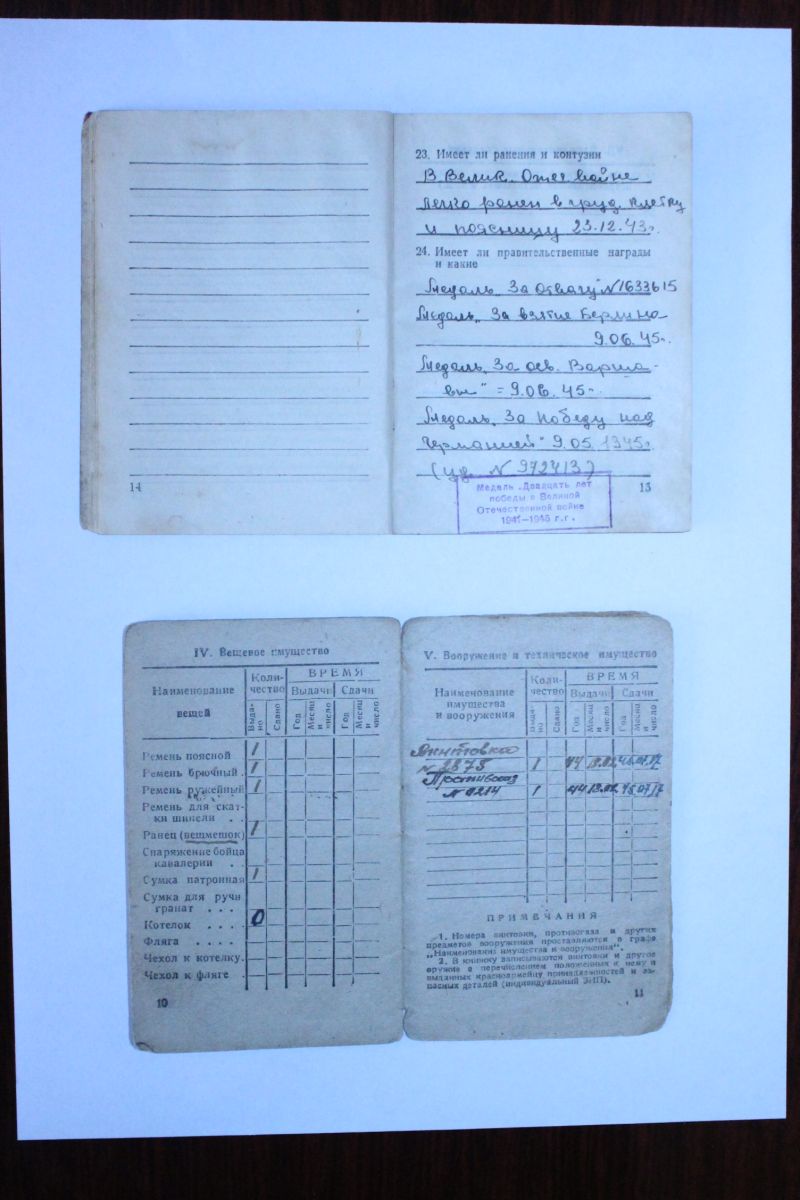 23. Имеет ли ранения и контузии
В Велик. Отеч войне
легко ранен в груд. клетку
и поясницу 23.12.43г.
24. Имеет ли правительственные награды
и какие
Медаль „За отвагу" №1633615
Медаль „За взятие Берлина
9.06.45г.
Медаль „За осв. Варша-
вы" = 9.06.45г.
Медаль „За победу над
Германией" 9.05.1945г.
(уд. № 9724137)
14
15
Медаль „Двадцать лет
победы в Великой
Отечественной войне
1941—1945 г.г.
IV. Вещевое имущество
Наименование
вещей
Коли-
чество
ВРЕМЯ
Выдачи
Сдачи
Выда-
но
Сдано
Год
Месяц
и
число
Год
Месяц
и
число
Ремень поясной 1
Ремень брючный . 1
Ремень ружейный 1
Ремень для скат-
ки шинели . .
Ранец (вещмешок) 1
Снаряжение бойца
кавалерии . .
Сумка патронная 1
Сумка для ручн
гранат . . .
Котелок . . . 0
Фляга . . . .
Чехол к котелку.
Чехол к фляге .
10
V. Вооружение и техническое имущество
Наименование
имущества
и вооружения
Коли-
чество
ВРЕМЯ
Выдачи
Сдачи
Выда-
но
Сдано
Год
Месяц
и
число
Год
Месяц
и
число
Винтовка
№ 2875 1 44 13.02 45 07.17
Противогаз
№ 9214 1 44 13.02 45 07.17
ПРИМЕЧАНИЯ
1. Номера винтовки, противогаза и других
предметов вооружения проставляются в графе
„Наименование имущества и вооружения".
2. В книжку записываются винтовки и другое
оружие с перечислением положенных к нему и
выданных красноармейцу принадлежностей и за-
пасных деталей (индивидуальный ЗИП).
11